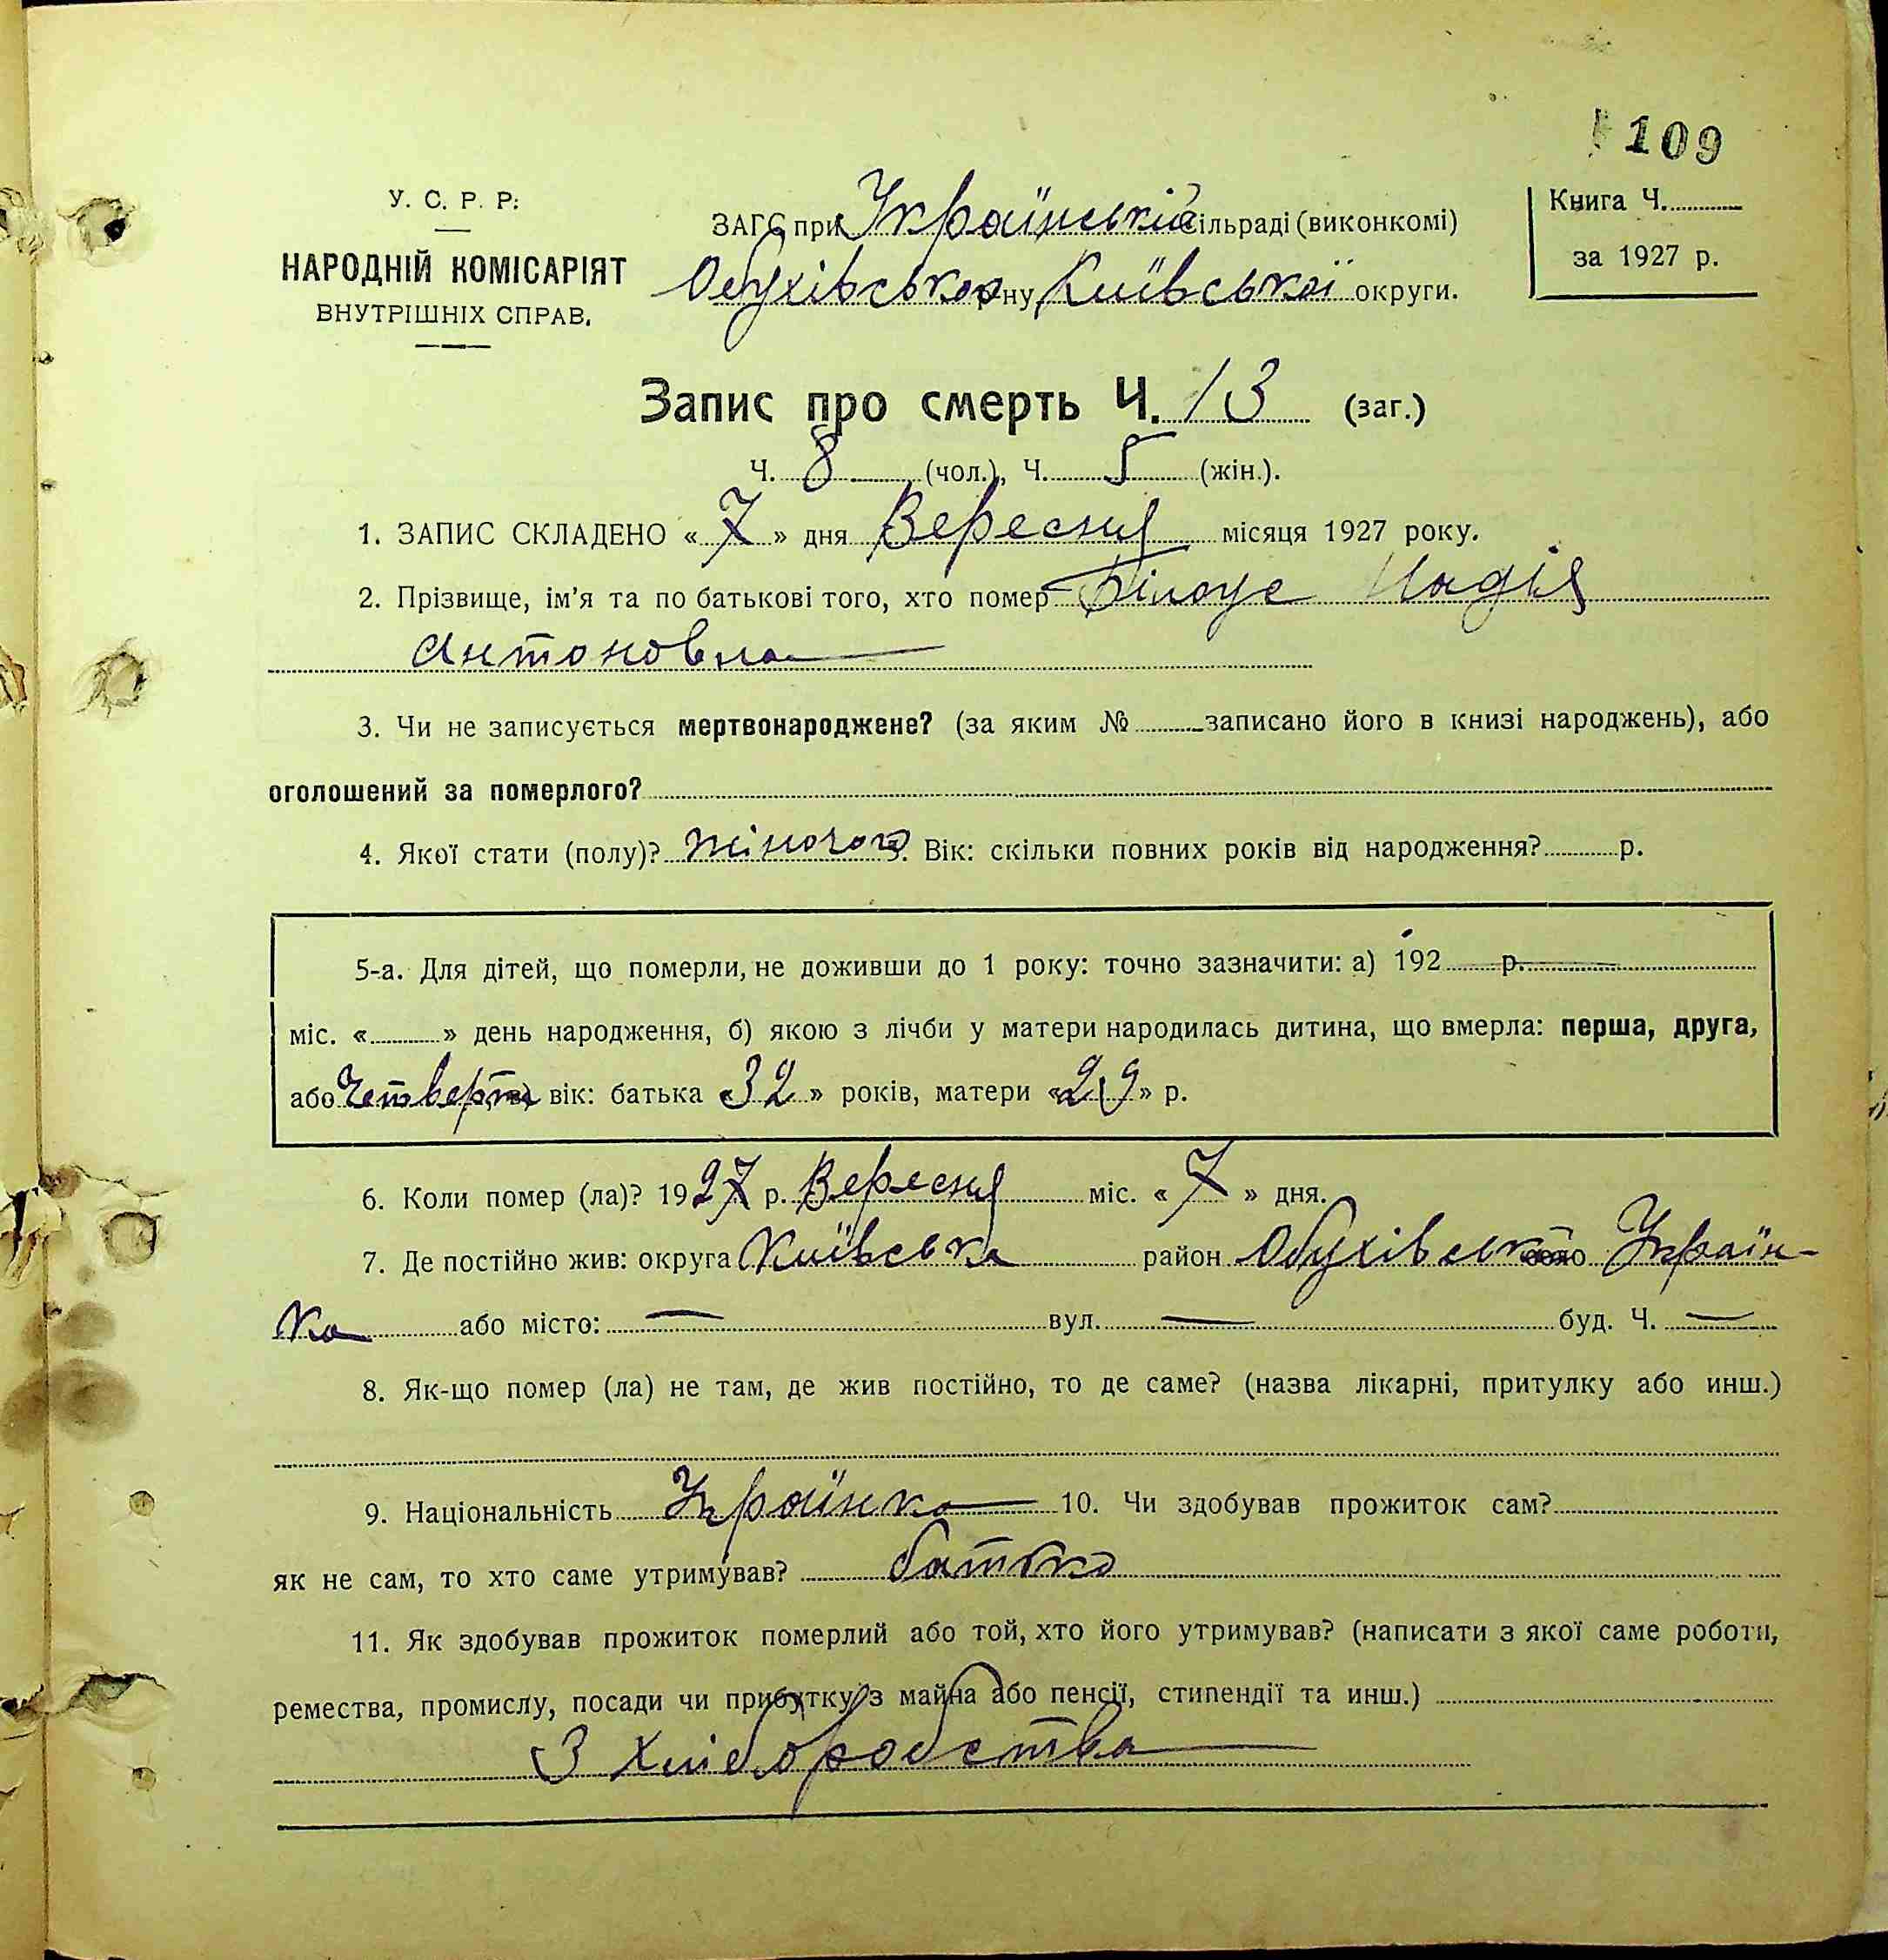 109
У. С. Р. Р:
НАРОДНІЙ КОМІСАРІЯТ
ВНУТРІШНІХ СПРАВ.
ЗАГС при Українській сільраді (виконкомі)
Обухівсько р-ну, Київської округи.
Книга Ч.
за 1927 р.
Запис про смерть Ч. 13 (заг.)
Ч. 8 (чол.), Ч. 5 (жін.).
1. ЗАПИС СКЛАДЕНО « 7 » дня Вересня місяця 1927 року.
2. Прізвище, ім'я та по батькові того, хто помер Білоус Надія
Антоновна
3. Чи не записується мертвонароджене? (за яким № записано його в книзі народжень), або
оголошений за померлого?
4. Якої стати (полу)? жіночого 5. Вік: скільки повних років від народження? р.
5-а. Для дітей, що померли, не доживши до 1 року: точно зазначити: а) 192 р.
міс. « » день народження, б) якою з лічби у матери народилась дитина, що вмерла: перша, друга,
або Четверта в) вік: батька «32» років, матери «29» р.
6. Коли помер (ла)? 1927 р. Вересня міс. « 7 » дня.
7. Де постійно жив: округа Київська район Обухівськ село Україн-
ка або місто: — вул. — буд. Ч. —
8. Як-що помер (ла) не там, де жив постійно, то де саме? (назва лікарні, притулку або инш.)
9. Національність Українка 10. Чи здобував прожиток сам?
як не сам, то хто саме утримував? батько
11. Як здобував прожиток померлий або той, хто його утримував? (написати з якої саме роботи,
ремества, промислу, посади чи прибутку з майна або пенсії, стипендії та инш.)
З хліборобства